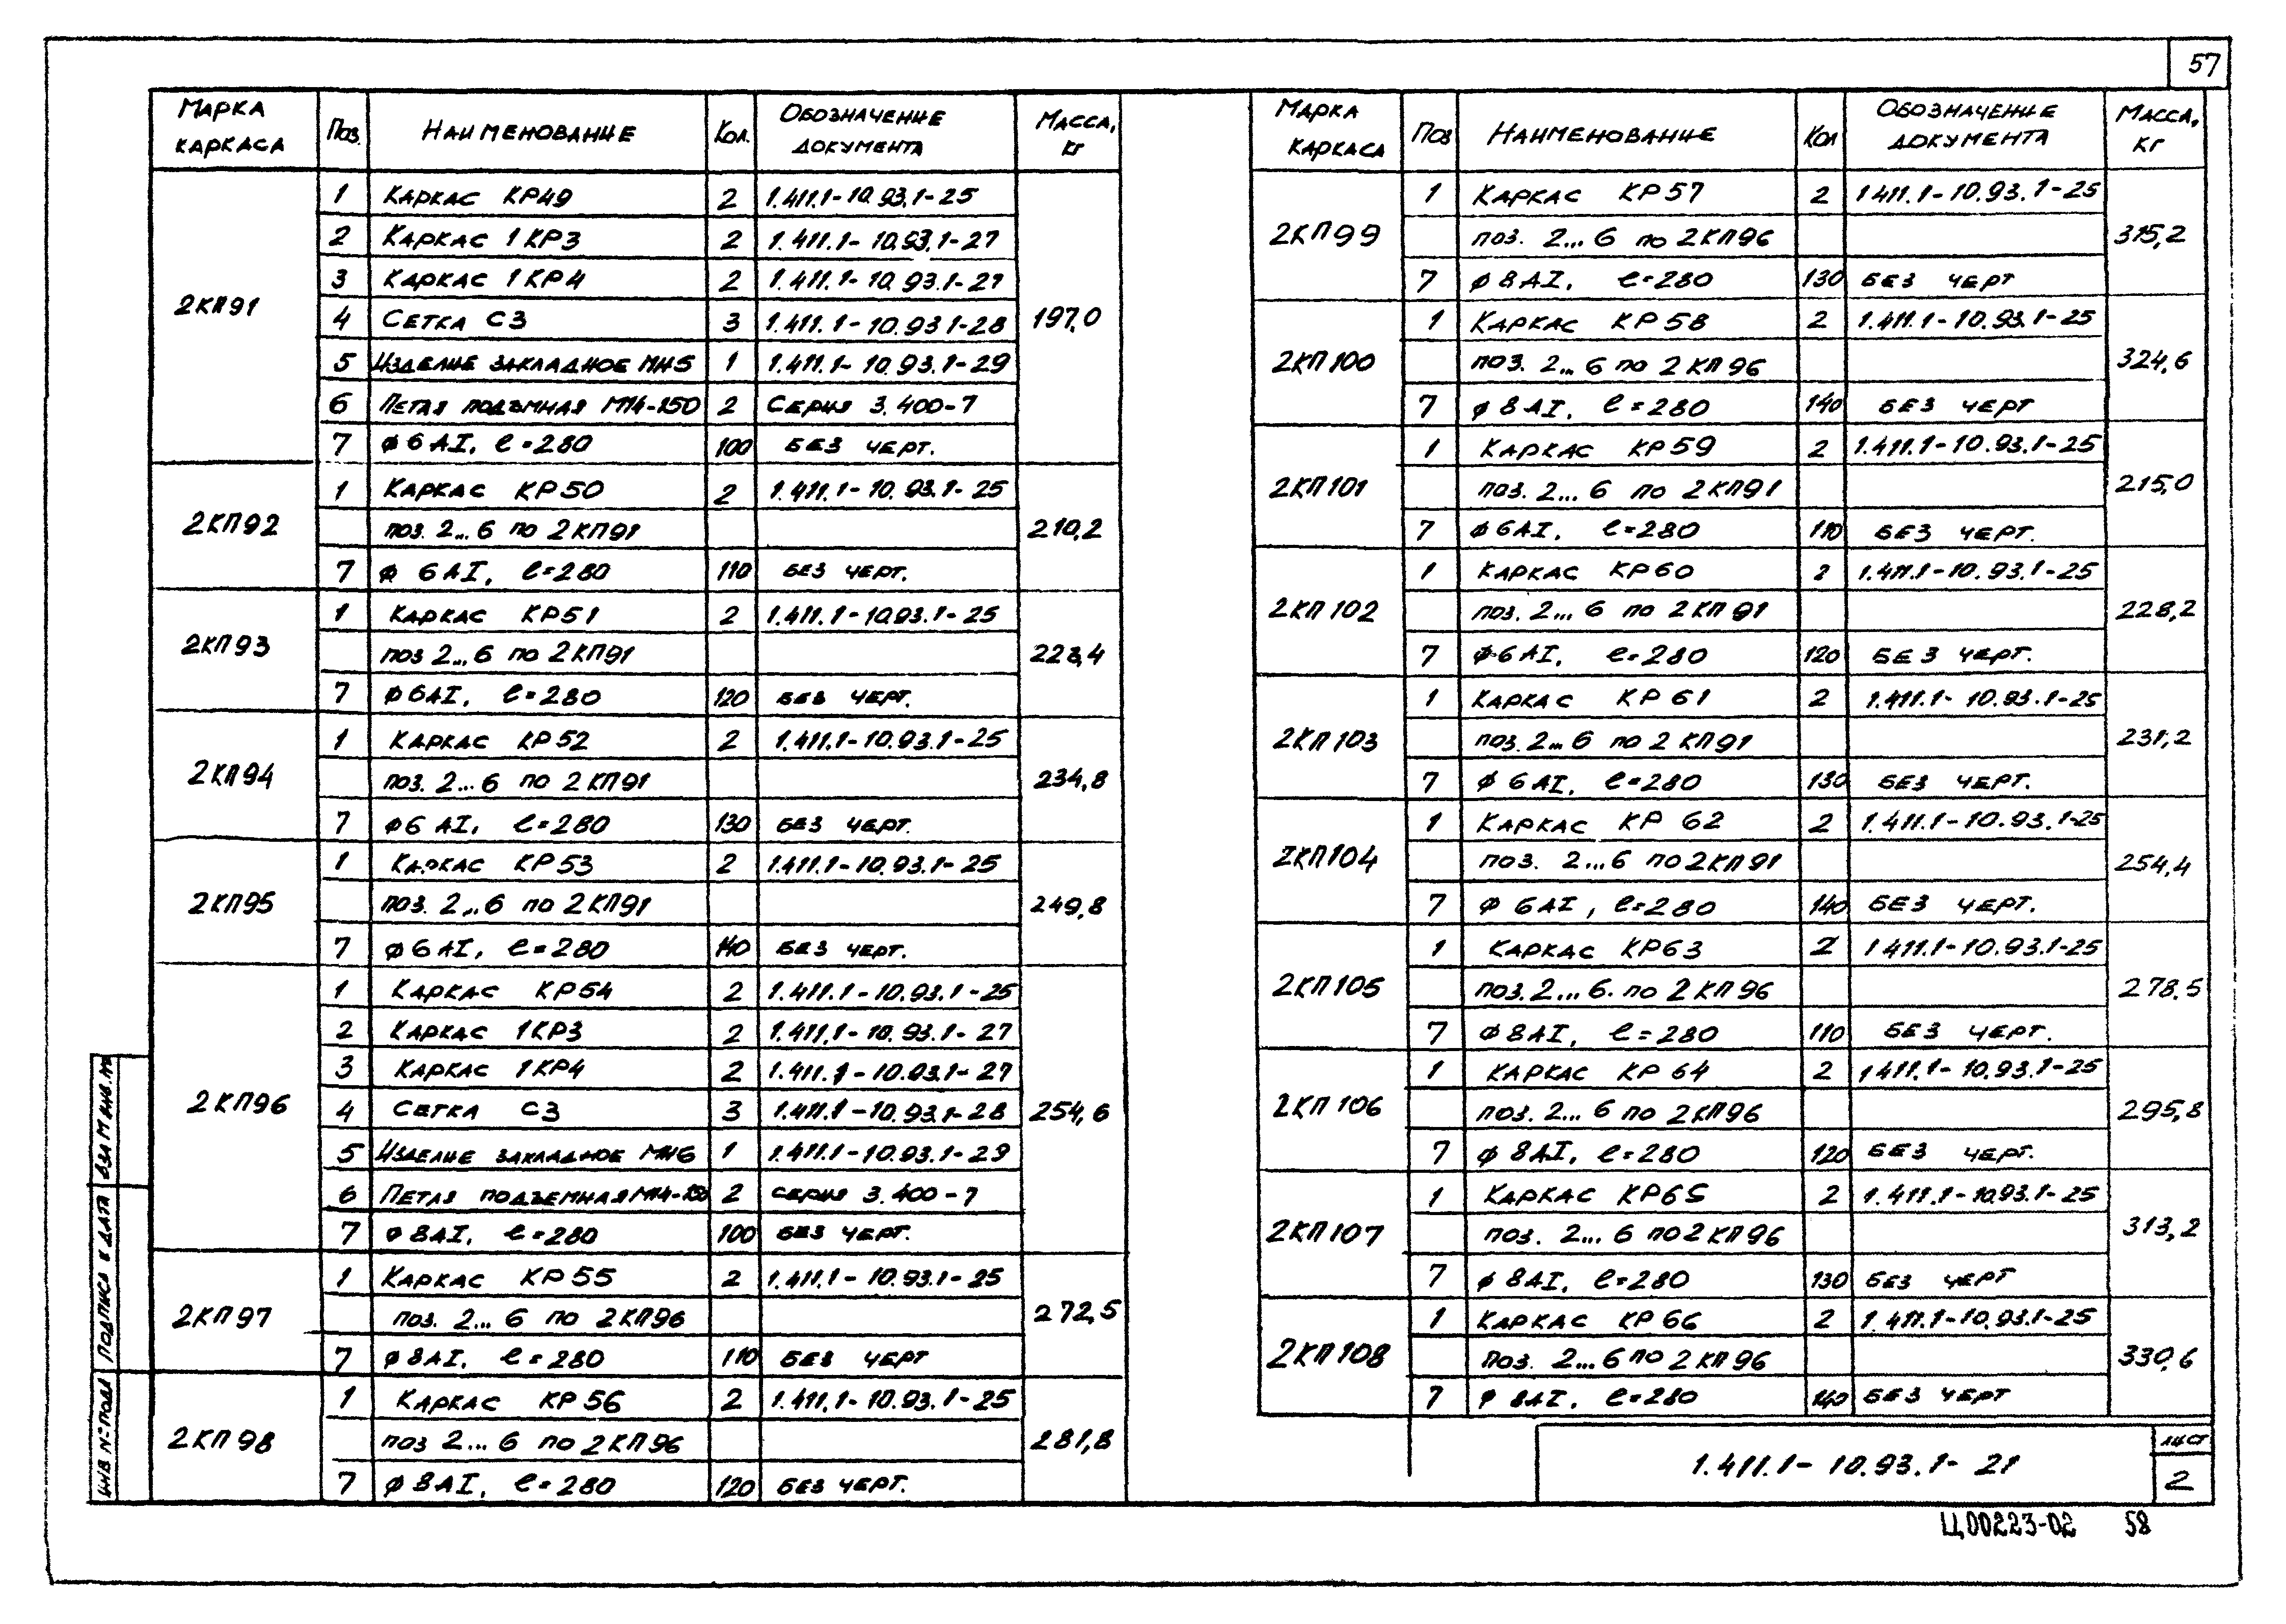 57
Марка каркаса Поз. Наименование Кол. Обозначение документа Масса, кг
2КП91 197,0
1 Каркас КР49 2 1.411.1-10.93.1-25
2 Каркас 1КР3 2 1.411.1-10.93.1-27
3 Каркас 1КР4 2 1.411.1-10.93.1-27
4 Сетка С3 3 1.411.1-10.93 1-28
5 Изделие закладное МН5 1 1.411.1-10.93.1-29
6 Петля подъмная М14-150 2 Серия 3.400-7
7 ϕ6АI, ℓ=280 100 без черт.
2КП92 210,2
1 Каркас КР50 2 1.411.1-10.93.1-25
поз. 2...6 по 2КП91
7 ϕ 6АI, ℓ=280 110 без черт.
2КП93 223,4
1 Каркас КР51 2 1.411.1-10.93.1-25
поз 2...6 по 2КП91
7 ϕ6АI, ℓ=280 120 без черт.
2КП94 234,8
1 Каркас КР52 2 1.411.1-10.93.1-25
поз. 2...6 по 2КП91
7 ϕ6 АI, ℓ=280 130 без черт.
2КП95 249,8
1 Каркас КР53 2 1.411.1-10.93.1-25
поз. 2...6 по 2КП91
7 ϕ6АI, ℓ=280 140 без черт.
2КП96 254,6
1 Каркас КР54 2 1.411.1-10.93.1-25
2 Каркас 1КР3 2 1.411.1-10.93.1-27
3 Каркас 1КР4 2 1.411.1-10.93.1-27
4 Сетка С3 3 1.411.1-10.93.1-28
5 Изделие закладное МН6 1 1.411.1-10.93.1-29
6 Петля подъемная М14-150 2 серия 3.400-7
7 ϕ8АI, ℓ=280 100 без черт.
2КП97 272,5
1 Каркас КР55 2 1.411.1-10.93.1-25
поз. 2...6 по 2КП96
7 ϕ8АI, ℓ=280 110 без черт
2КП98 281,8
1 Каркас КР56 2 1.411.1-10.93.1-25
поз 2...6 по 2КП96
7 ϕ8АI, ℓ=280 120 без черт.
Марка каркаса Поз Наименование Кол Обозначение документа Масса, кг
2КП99 315,2
1 Каркас КР57 2 1 411.1-10.93.1-25
поз. 2...6 по 2КП96
7 ϕ8АI, ℓ=280 130 без черт
2КП100 324,6
1 Каркас КР58 2 1.411.1-10.93.1-25
поз. 2...6 по 2КП96
7 ϕ8АI, ℓ=280 140 без черт
2КП101 215,0
1 Каркас КР59 2 1.411.1-10.93.1-25
поз. 2...6 по 2КП91
7 ϕ6АI, ℓ=280 110 без черт.
2КП102 228,2
1 Каркас КР60 2 1.411.1-10.93.1-25
поз. 2...6 по 2КП91
7 ϕ6АI, ℓ=280 120 без черт.
2КП103 231,2
1 Каркас КР61 2 1.411.1-10.93.1-25
поз. 2...6 по 2КП91
7 ϕ6АI, ℓ=280 130 без черт.
2КП104 254,4
1 Каркас КР 62 2 1.411.1-10.93.1-25
поз. 2...6 по 2КП91
7 ϕ 6АI, ℓ=280 140 без черт.
2КП105 278.5
1 Каркас КР63 2 1.411.1-10.93.1-25
поз. 2...6. по 2КП96
7 ϕ8АI, ℓ=280 110 без черт.
2КП106 295,8
1 Каркас КР 64 2 1 411.1-10.93.1-25
поз. 2...6 по 2КП96
7 ϕ 8АI, ℓ=280 120 без черт.
2КП107 313,2
1 Каркас КР65 2 1.411.1-10.93.1-25
поз. 2...6 по 2КП96
7 ϕ8АI, ℓ=280 130 без черт
2КП108 330,6
1 Каркас КР66 2 1.411.1-10.93.1-25
поз. 2...6 по 2КП96
7 ϕ 8АI, ℓ=280 140 без черт
Взам инв. №
Подпись и дата
Инв № подл
1.411.1-10.93.1-21
лист
2
Ц00223-02 58